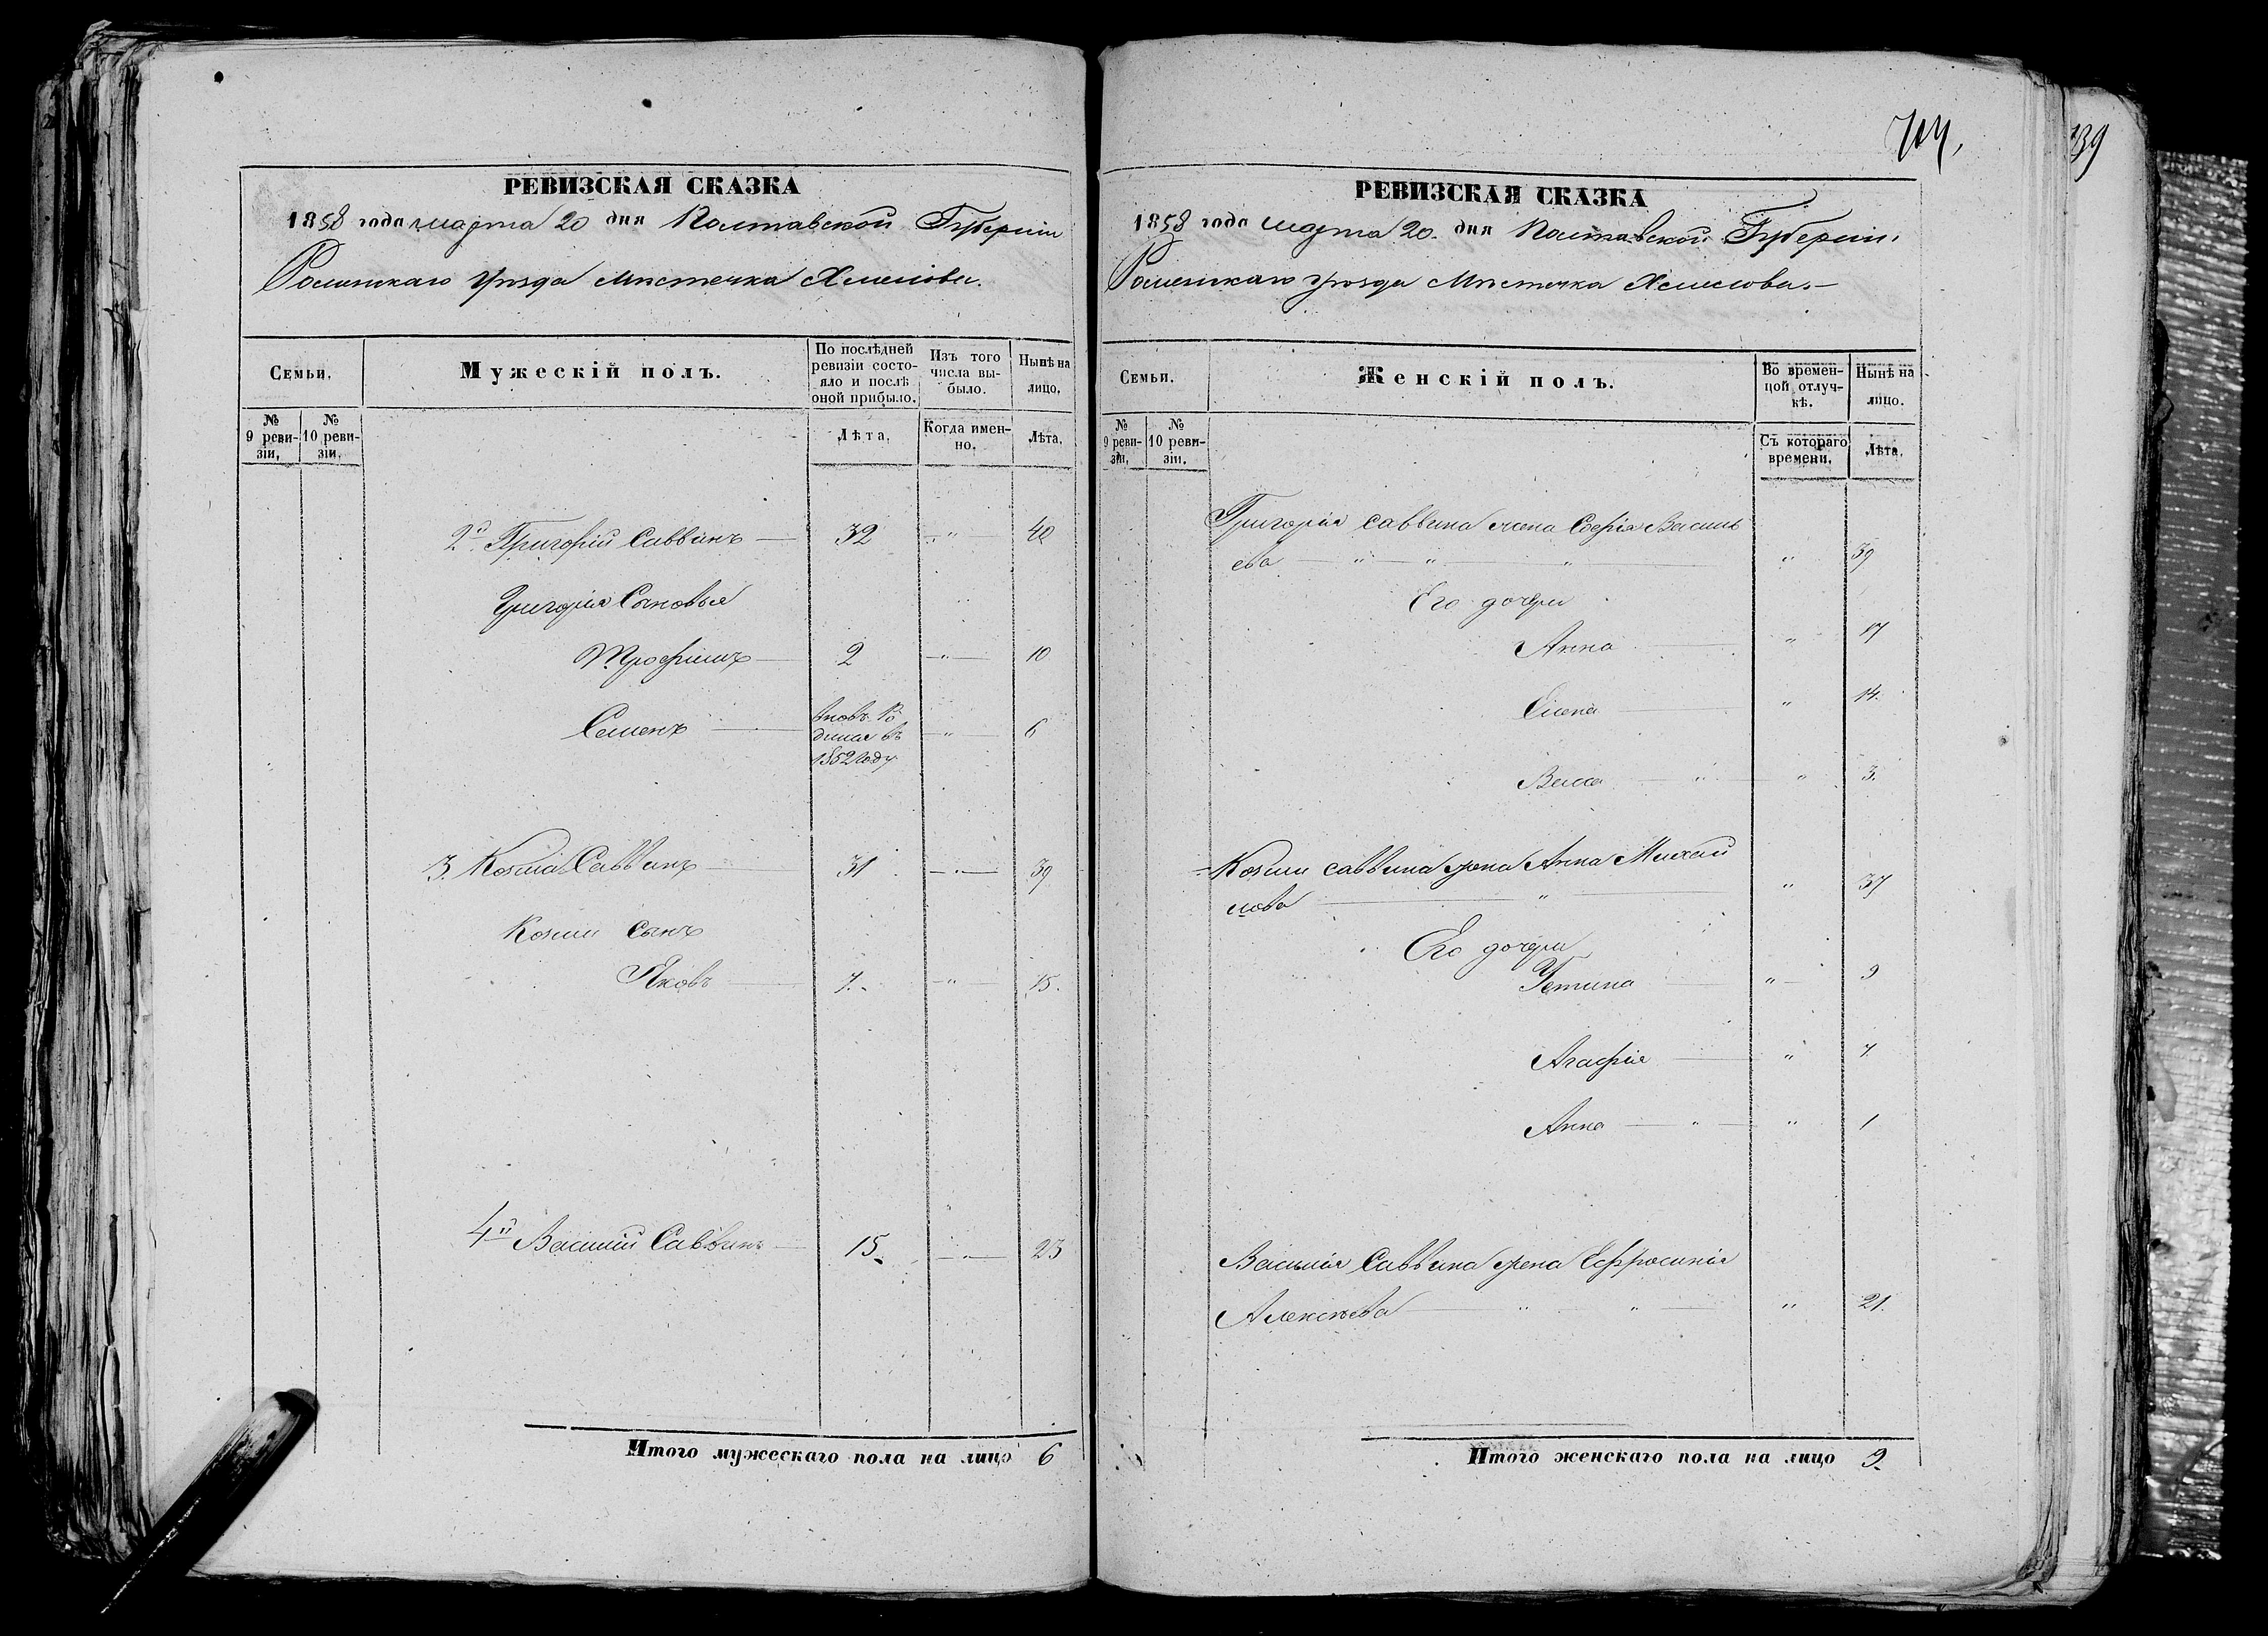 РЕВИЗСКАЯ СКАЗКА
1858 года марта 20 дня Полтавской Губернии
Роменскаго уѣзда Мѣстечка Хмелова.
Семьи. Мужескій полъ. По послѣдней ревизіи состояло и послѣ оной прибыло. Изъ того числа выбыло. Нынѣ на лицо.
№ 9 ревизіи, № 10 ревизіи. Лѣта. Когда именно. Лѣта.
2й Григорій Саввинъ — 32 — " — 40
Григорія Сыновья
Трофимъ — 2 — " — 10
Семенъ — вновь ро
дился въ — " — 6
1852 году
3. Козма Саввинъ — 31 — " — 39
Козми сынъ
Яковъ — 7. — " — 15.
4й Василий Саввинъ — 15 — " — 23
Итого мужескаго пола на лицо 6
714.
139
РЕВИЗСКАЯ СКАЗКА
1858 года марта 20. дня Полтавской Губерніи.
Роменскаго уѣзда Мѣстечка Хмелова. —
Семьи. Женскій полъ. Во временной отлучкѣ. Нынѣ на лицо.
№ 9 ревизіи, № 10 ревизіи. Съ котораго времени. Лѣта.
Григорія Саввина жена Софія Василь
ева — " — " — " — " 39
Его дочери
Анна — " 17
Елена — " 14.
Васса — " — " 3.
Козми Саввина жена Анна Михай
лова — " — " 37
Его дочери
Устина — " — 9
Агафія — " 7.
Анна — " — " 1
Василія Саввина жена Ефросинія
Алексѣева — " — " — " 21.
Итого женскаго пола на лицо 9.